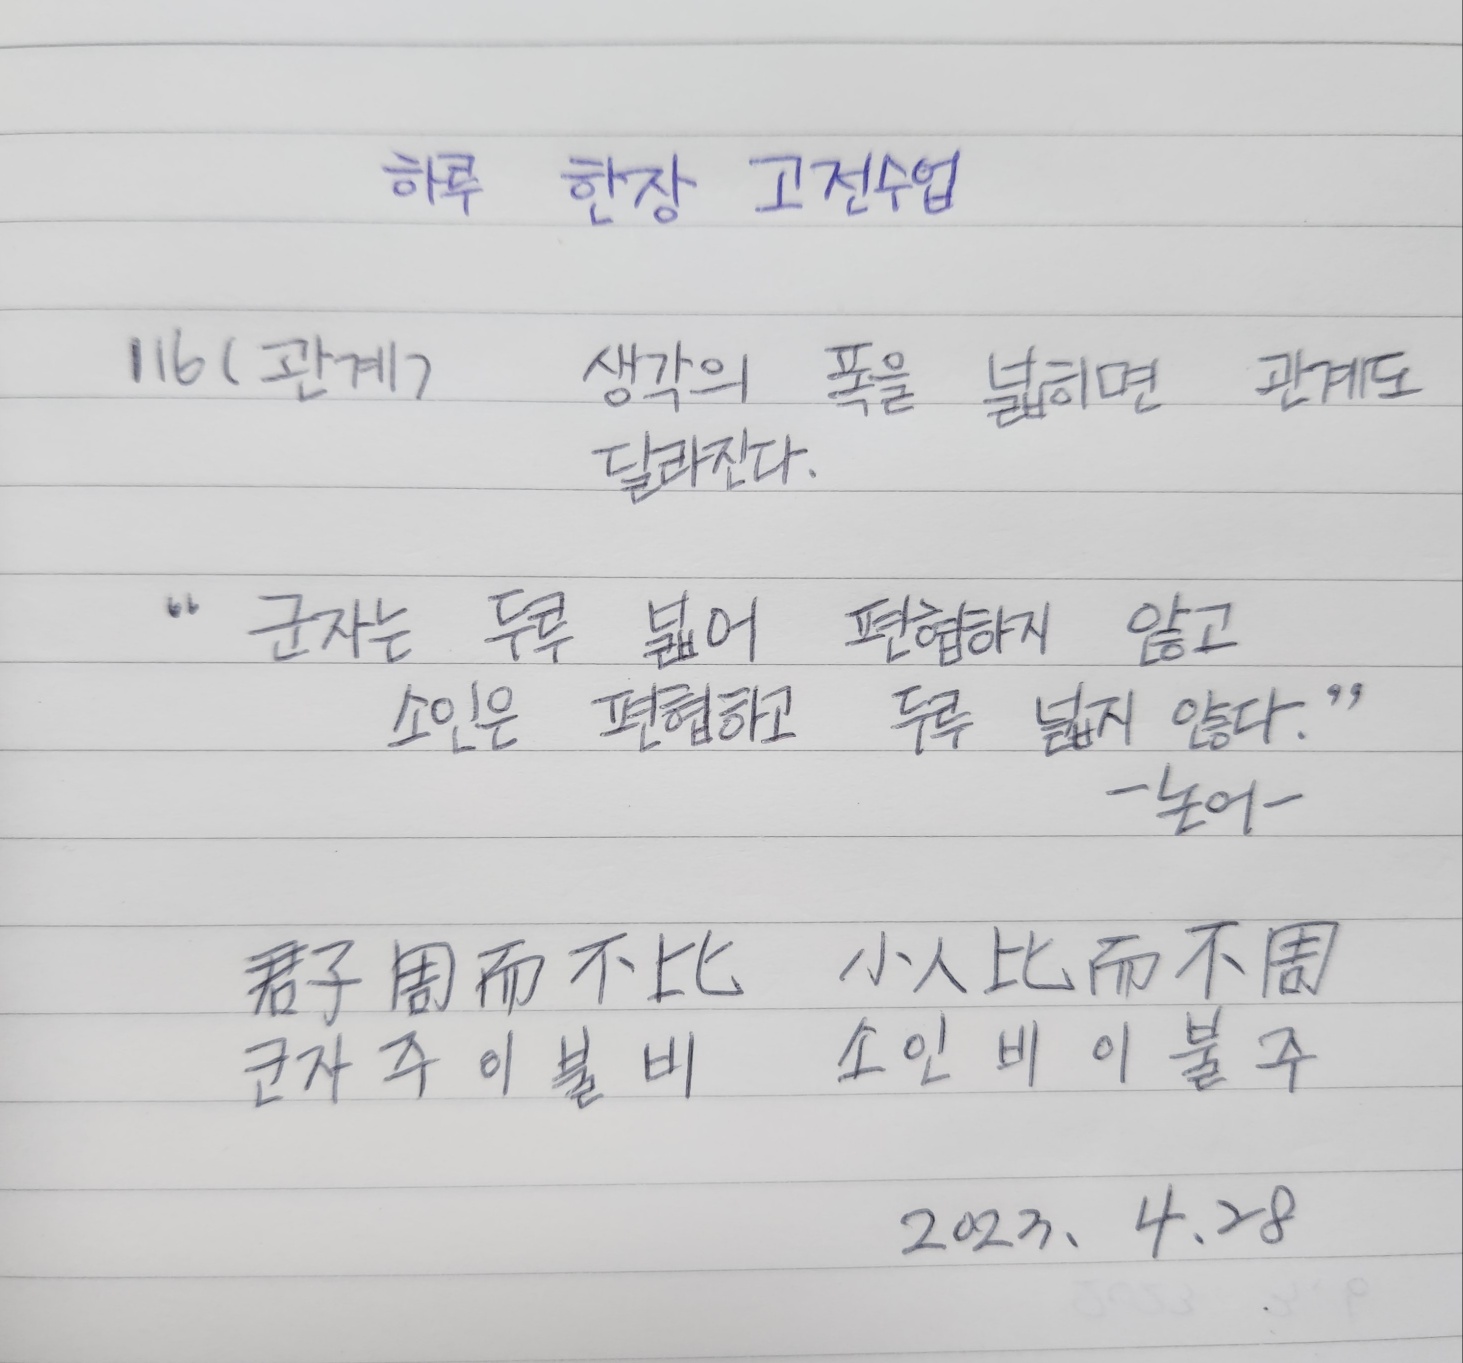 하루 한장 고전수업
116(관계) 생각의 폭을 넓히면 관계도
달라진다.
“ 군자는 두루 넓어 편협하지 않고
소인은 편협하고 두루 넓지 않다.”
-논어-
君子周而不比 小人比而不周
군자 주 이 불 비 소 인 비 이 불 주
2023. 4.28